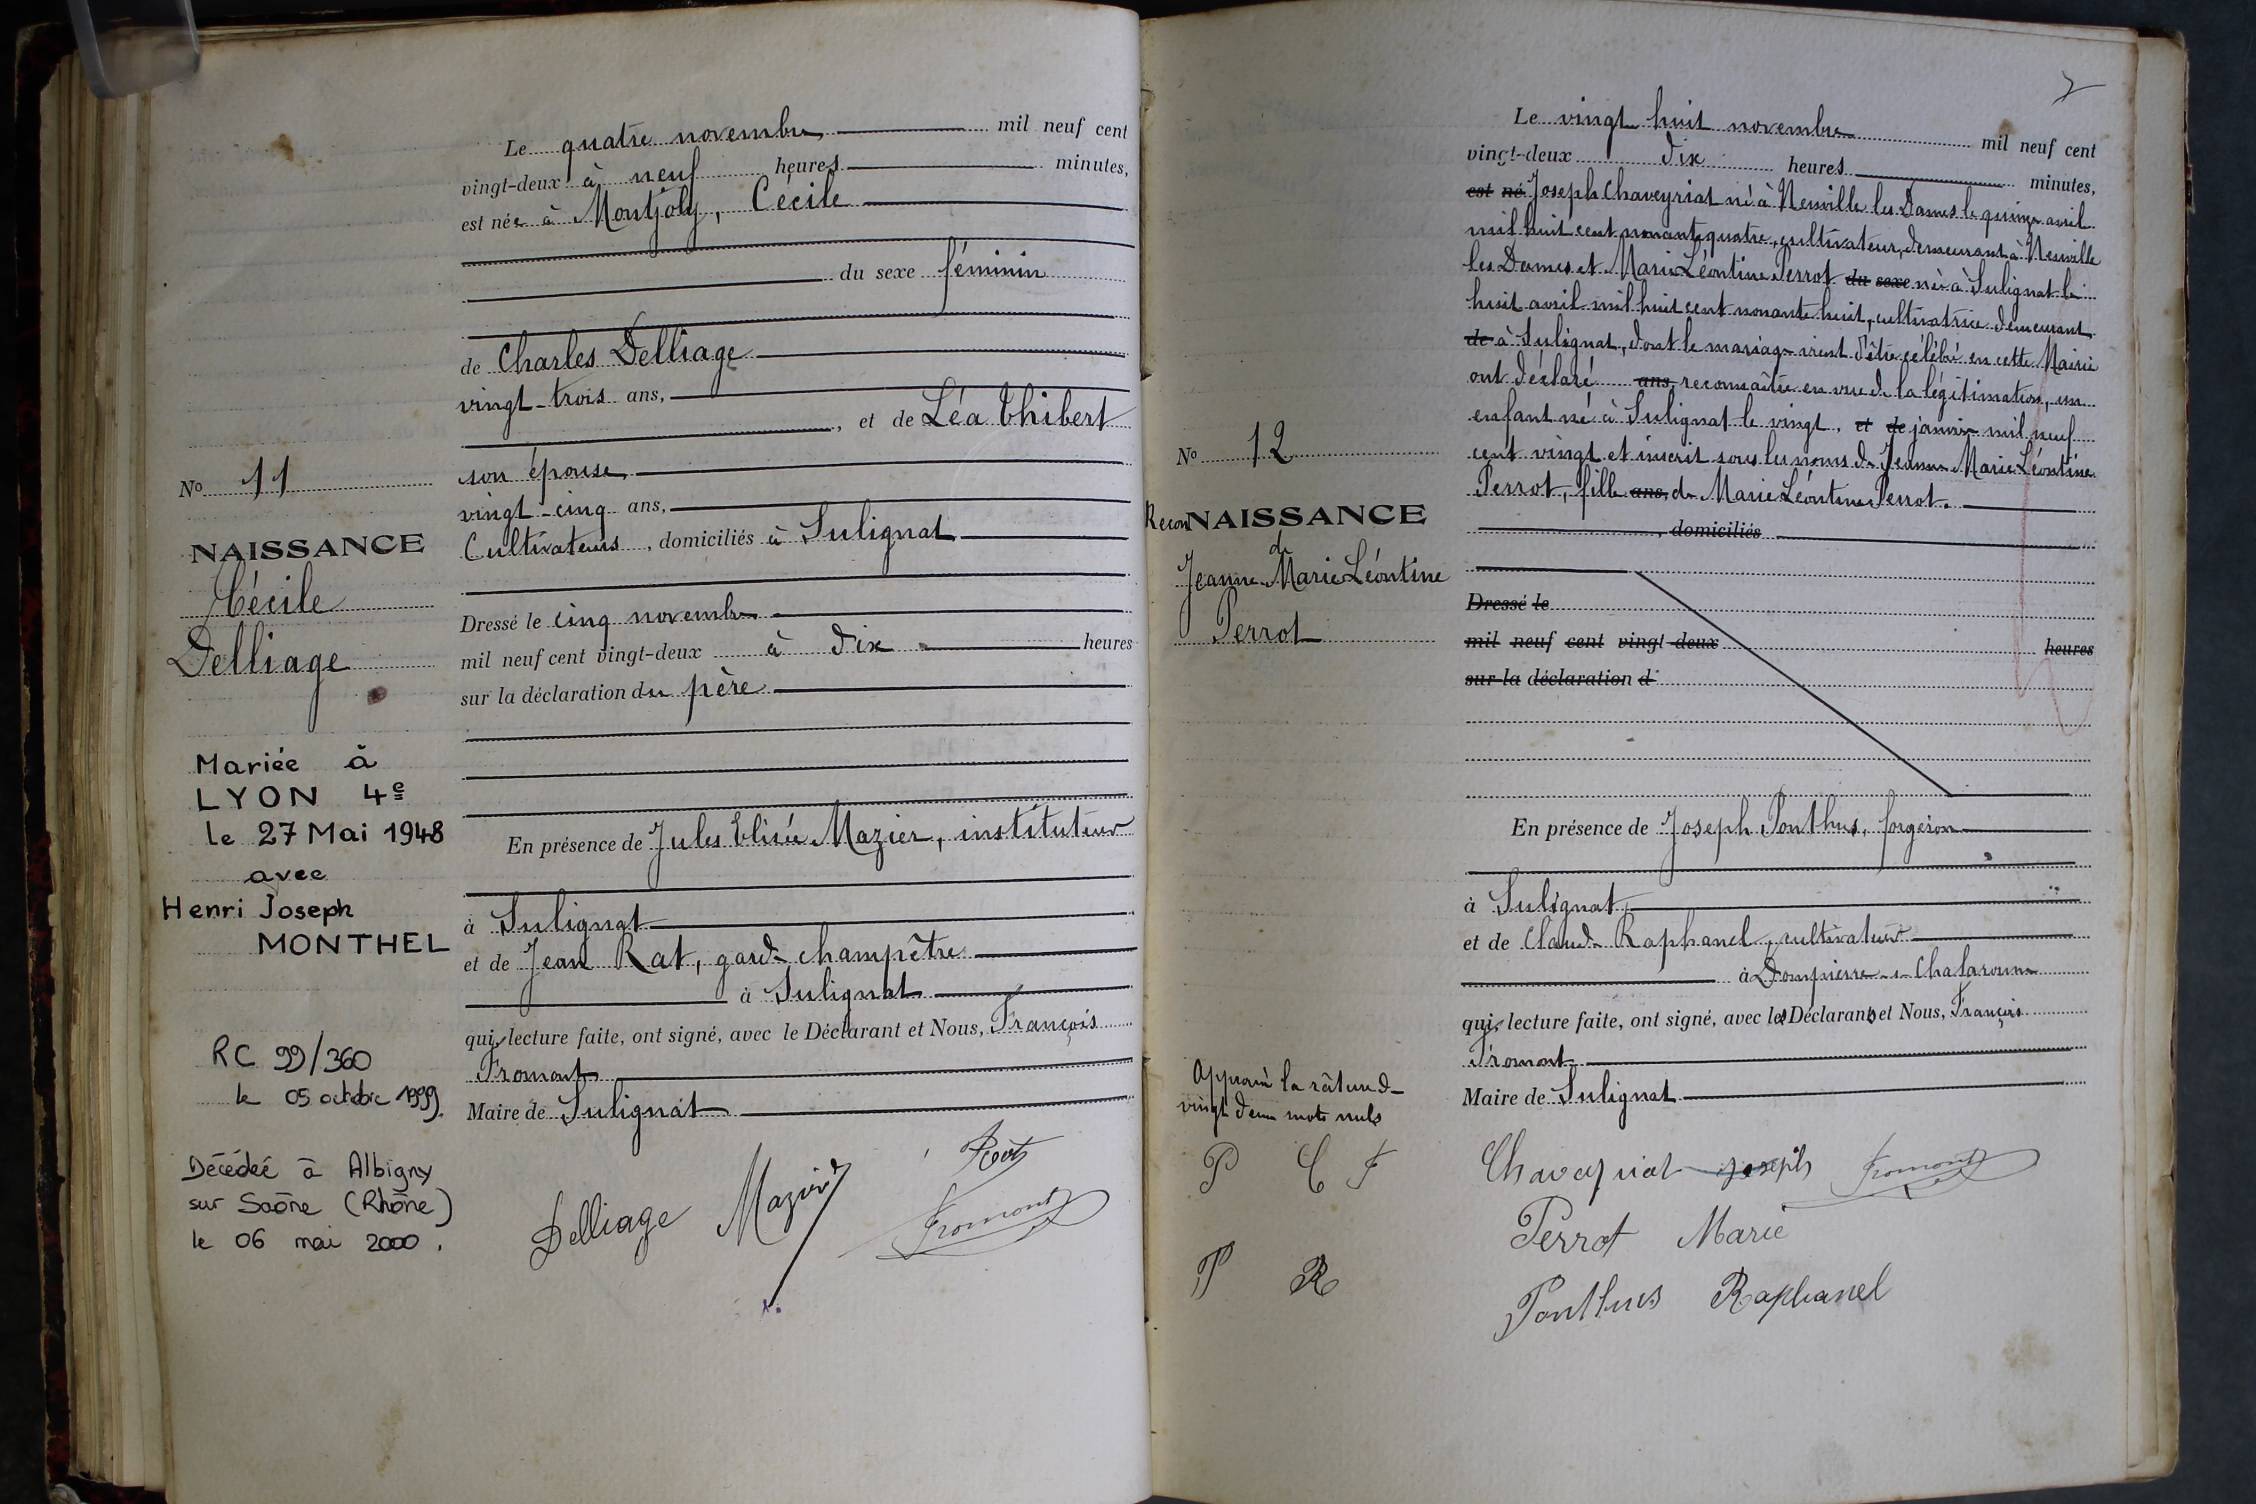 Le quatre novembre mil neuf cent
vingt-deux à neuf heures minutes,
est née à Montjoly, Cécile
du sexe féminin
de Charles Delliage
vingt-trois ans,
, et de Léa Thibert
son épouse
vingt-cinq ans,
Cultivateurs, domiciliés à Sulignat
Dressé le cinq novembre
mil neuf cent vingt-deux à dix heures
sur la déclaration du père
En présence de Jules Elisée Mazier, instituteur
à Sulignat
et de Jean Rat, garde champêtre
à Sulignat
qui, lecture faite, ont signé, avec le Déclarant et Nous, François
Fromont
Maire de Sulignat
Delliage Mazier Rat
Fromont
No 11
NAISSANCE
Cécile
Delliage
Mariée à
LYON 4e
le 27 Mai 1948
avec
Henri Joseph
MONTHEL
RC 99/360
le 05 octobre 1999.
Décédée à Albigny
sur Saône (Rhône)
le 06 mai 2000.
Le vingt huit novembre mil neuf cent
vingt-deux dix heures minutes,
est né Joseph Chaveyriat né à Neuville les Dames le quinze avril
mil huit cent nonante quatre, cultivateur, demeurant à Neuville
les Dames et Marie Léontine Perrot du sexe née à Sulignat le
huit avril mil huit cent nonante huit, cultivatrice demeurant
de à Sulignat, dont le mariage vient d'être célébré en cette Mairie
ont déclaré ans, reconnaître en vue de la légitimation, un
enfant né à Sulignat le vingt, et de janvier mil neuf
cent vingt et inscrit sous les noms de Jeanne Marie Léontine
Perrot, fille ans, de Marie Léontine Perrot.
, domiciliés
Dressé le
mil neuf cent vingt-deux heures
sur la déclaration d
En présence de Joseph Ponthus, forgeron
à Sulignat
et de Claude Raphanel, cultivateur
à Dompierre s Chalaronne
qui, lecture faite, ont signé, avec les Déclarants et Nous, François
Fromont
Maire de Sulignat
Chaveyriat Joseph Fromont
Perrot Marie
Ponthus Raphanel
No 12
Recon NAISSANCE
de
Jeanne Marie Léontine
Perrot
Approuvé la râture de
vingt deux mots nuls
P C F
P R